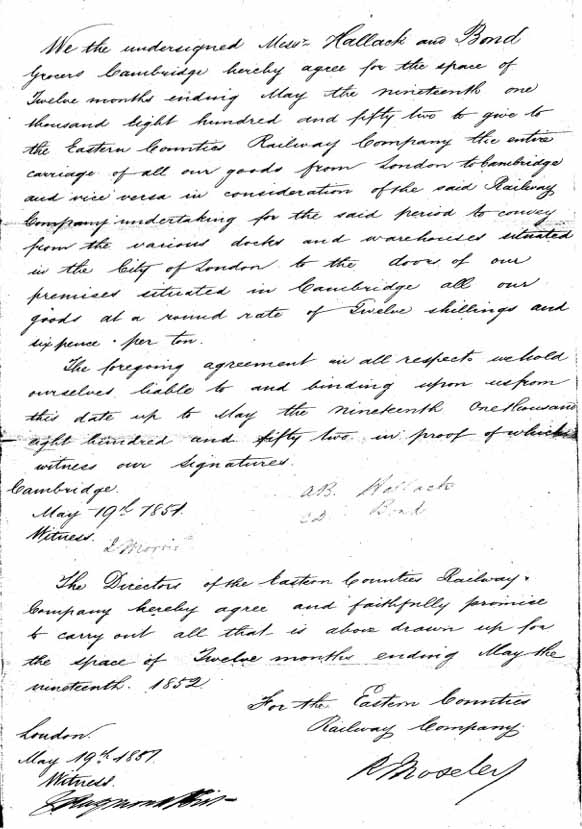 We the undersigned Messrs Hallack and Bond
Grocers Cambridge hereby agree for the space of
Twelve months ending May the nineteenth one
thousand eight hundred and fifty two to give to
the Eastern Counties Railway Company the entire
carriage of all our goods from London to Cambridge
and vice versa in consideration of the said Railway
Company undertaking for the said period to convey
from the various docks and warehouses situated
in the City of London to the doors of our
premises situated in Cambridge all our
goods at a round rate of Twelve shillings and
sixpence . per ton.
The foregoing agreement in all respects we hold
ourselves liable to and binding upon us from
this date up to May the nineteenth One thousand
eight hundred and fifty two in proof of which
witness our Signatures.
Cambridge.
May 19th 1851.
Witness.
AB. Hallack
CD Bond
Morris
The Directors of the Eastern Counties Railway.
Company hereby agree and faithfully promise
to carry out all that is above drawn up for
the space of Twelve months ending May the
nineteenth. 1852.
For the Eastern Counties
Railway Company.
London.
May 19th 1851.
Witness.
R Moseley